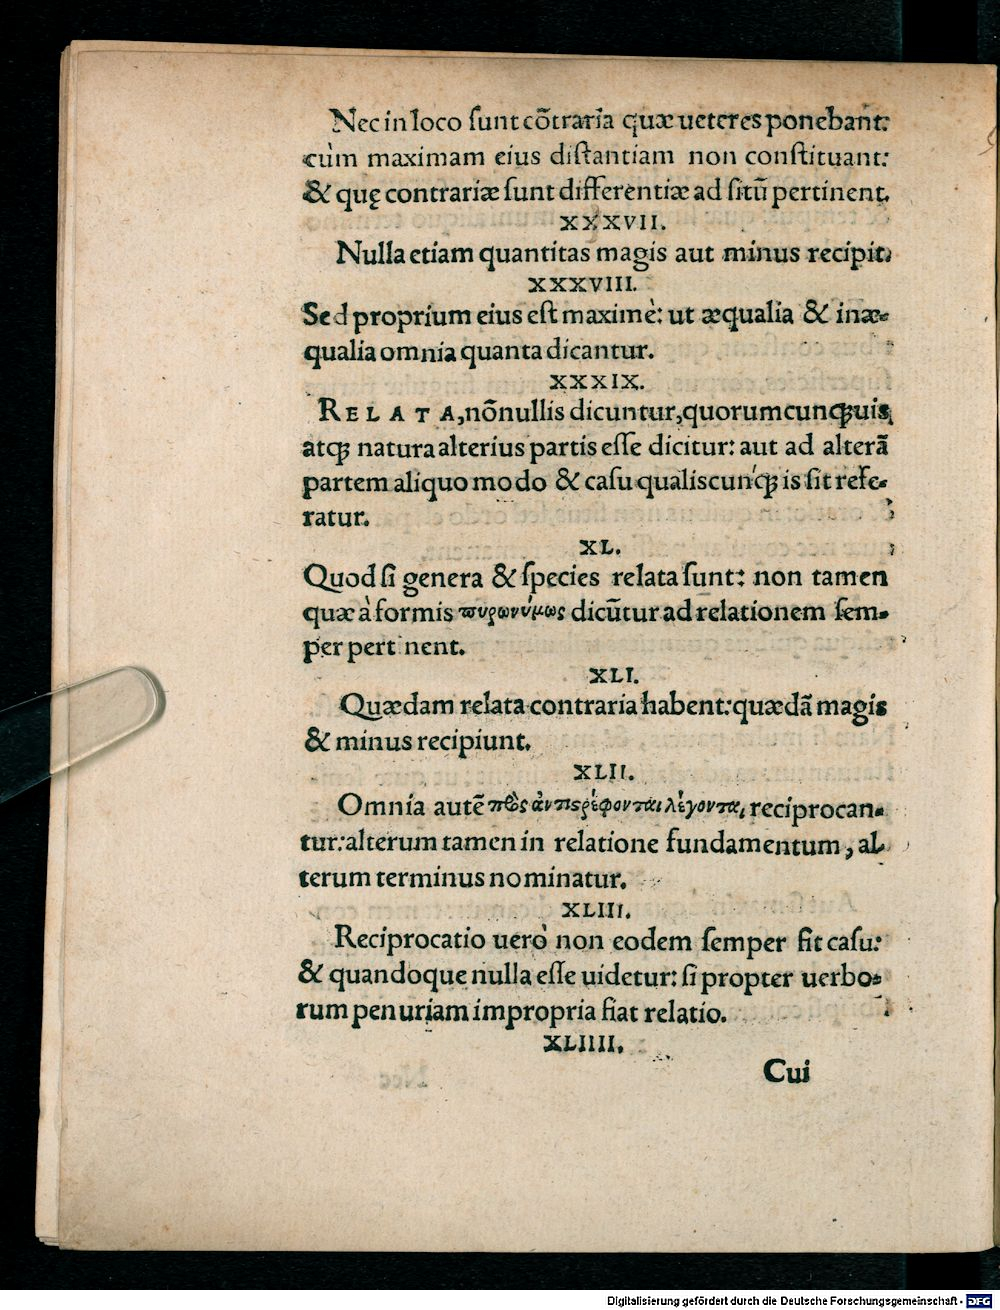 Nec in loco sunt cõtraria quæ ueteres ponebant:
cùm maximam eius distantiam non constituant:
& quę contrariæ sunt differentiæ ad sitũ pertinent.
XXXVII.
Nulla etiam quantitas magis aut minus recipit.
XXXVIII.
Sed proprium eius est maximè: ut æqualia & inæ-
qualia omnia quanta dicantur.
XXXIX.
RELATA, nõnullis dicuntur, quorumcunqꝫ uis
atqꝫ natura alterius partis esse dicitur: aut ad alterã
partem aliquo modo & casu qualiscunqꝫ is sit refe-
ratur.
XL.
Quod si genera & species relata sunt: non tamen
quæ à formis παρωνύμως dicũtur ad relationem sem-
per pertinent.
XLI.
Quædam relata contraria habent: quædã magis
& minus recipiunt.
XLII.
Omnia autẽ πρὸς ἀντιστρέφονται λέγονται, reciprocan-
tur: alterum tamen in relatione fundamentum, al-
terum terminus nominatur.
XLIII.
Reciprocatio uerò non eodem semper fit casu:
& quandoque nulla esse uidetur: si propter uerbo-
rum penuriam impropria fiat relatio.
XLIIII.
Cui
Digitalisierung gefördert durch die Deutsche Forschungsgemeinschaft - DFG